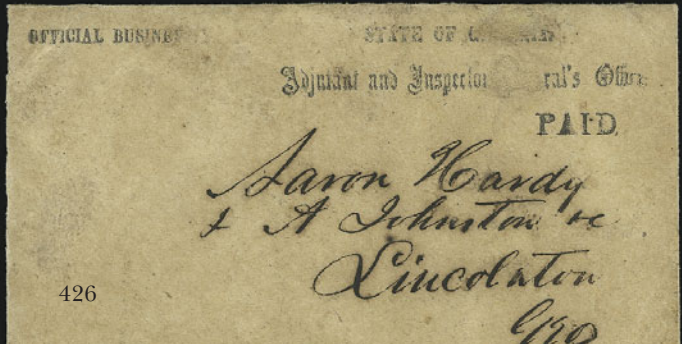 OFFICIAL BUSINE
STATE OF
Adjutant and Inspector ral's Office
PAID
Aaron Hardy
& A Johnston &c
Lincolnton
Geo
426